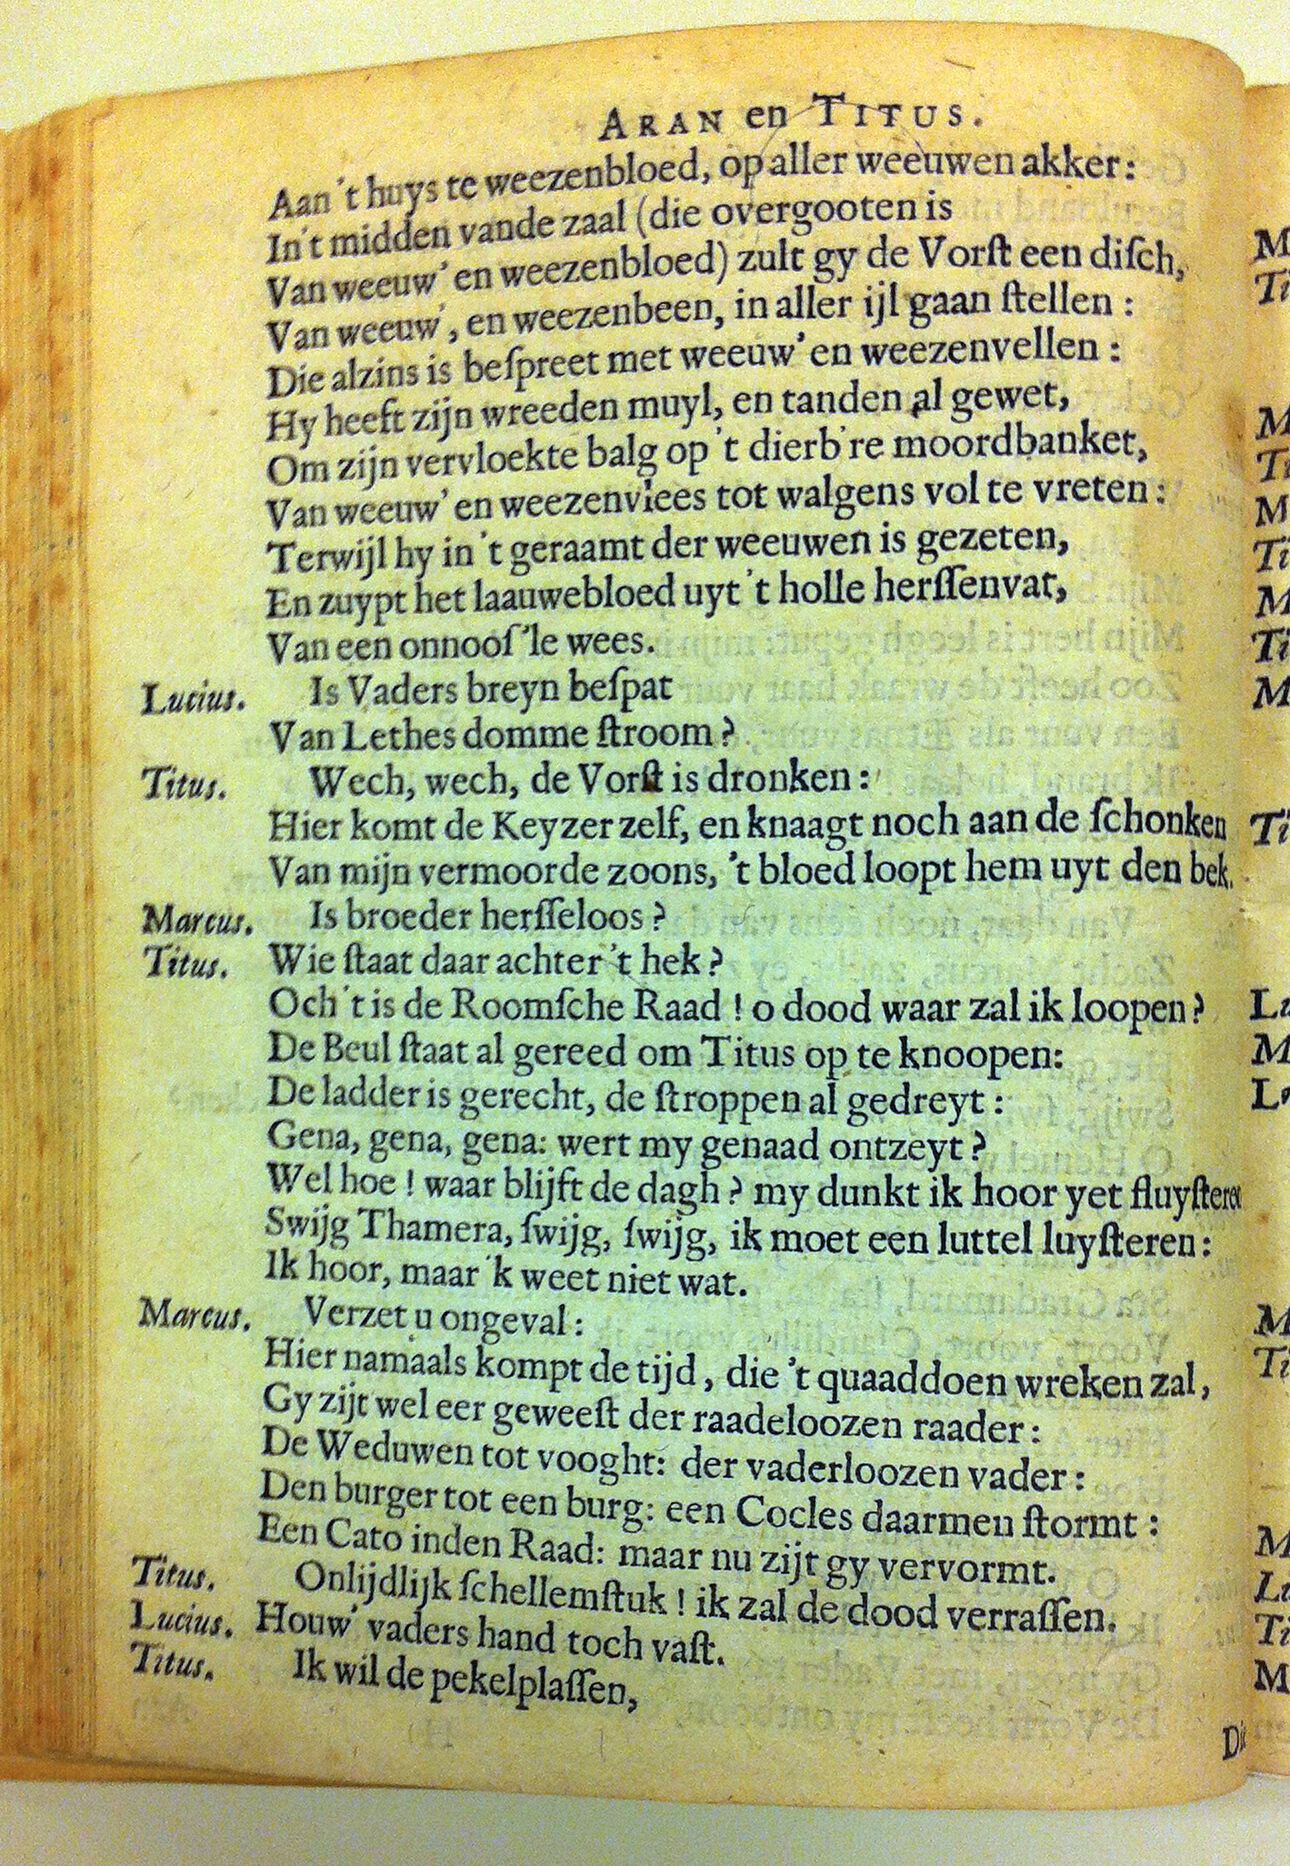 ARAN en TITUS.
Aan 't huys te weezenbloed, op aller weeuwen akker:
In't midden vande zaal (die overgooten is
Van weeuw' en weezenbloed) zult gy de Vorſt een diſch,
Van weeuw', en weezenbeen, in aller ijl gaan ſtellen:
Die alzins is beſpreet met weeuw' en weezenvellen:
Hy heeft zijn wreeden muyl, en tanden al gewet,
Om zijn vervloekte balg op 't dierb're moordbanket,
Van weeuw' en weezenvlees tot walgens vol te vreten:
Terwijl hy in 't geraamt der weeuwen is gezeten,
En zuypt het laauwebloed uyt 't holle herſſenvat,
Van een onnooſ'le wees.
Lucius. Is Vaders breyn beſpat
Van Lethes domme ſtroom?
Titus. Wech, wech, de Vorſt is dronken:
Hier komt de Keyzer zelf, en knaagt noch aan de ſchonken
Van mijn vermoorde zoons, 't bloed loopt hem uyt den bek.
Marcus. Is broeder herſſeloos?
Titus. Wie ſtaat daar achter 't hek?
Och 't is de Roomſche Raad! o dood waar zal ik loopen?
De Beul ſtaat al gereed om Titus op te knoopen:
De ladder is gerecht, de ſtroppen al gedreyt:
Gena, gena, gena: wert my genaad ontzeyt?
Wel hoe! waar blijft de dagh? my dunkt ik hoor yet fluyſteren
Swijg Thamera, ſwijg, ſwijg, ik moet een luttel luyſteren:
Ik hoor, maar 'k weet niet wat.
Marcus. Verzet u ongeval:
Hier namaals kompt de tijd, die 't quaaddoen wreken zal,
Gy zijt wel eer geweeſt der raadeloozen raader:
De Weduwen tot vooght: der vaderloozen vader:
Den burger tot een burg: een Cocles daarmen ſtormt:
Een Cato inden Raad: maar nu zijt gy vervormt.
Titus. Onlijdlijk ſchellemſtuk! ik zal de dood verraſſen.
Lucius. Houw' vaders hand toch vaſt.
Titus. Ik wil de pekelplaſſen,